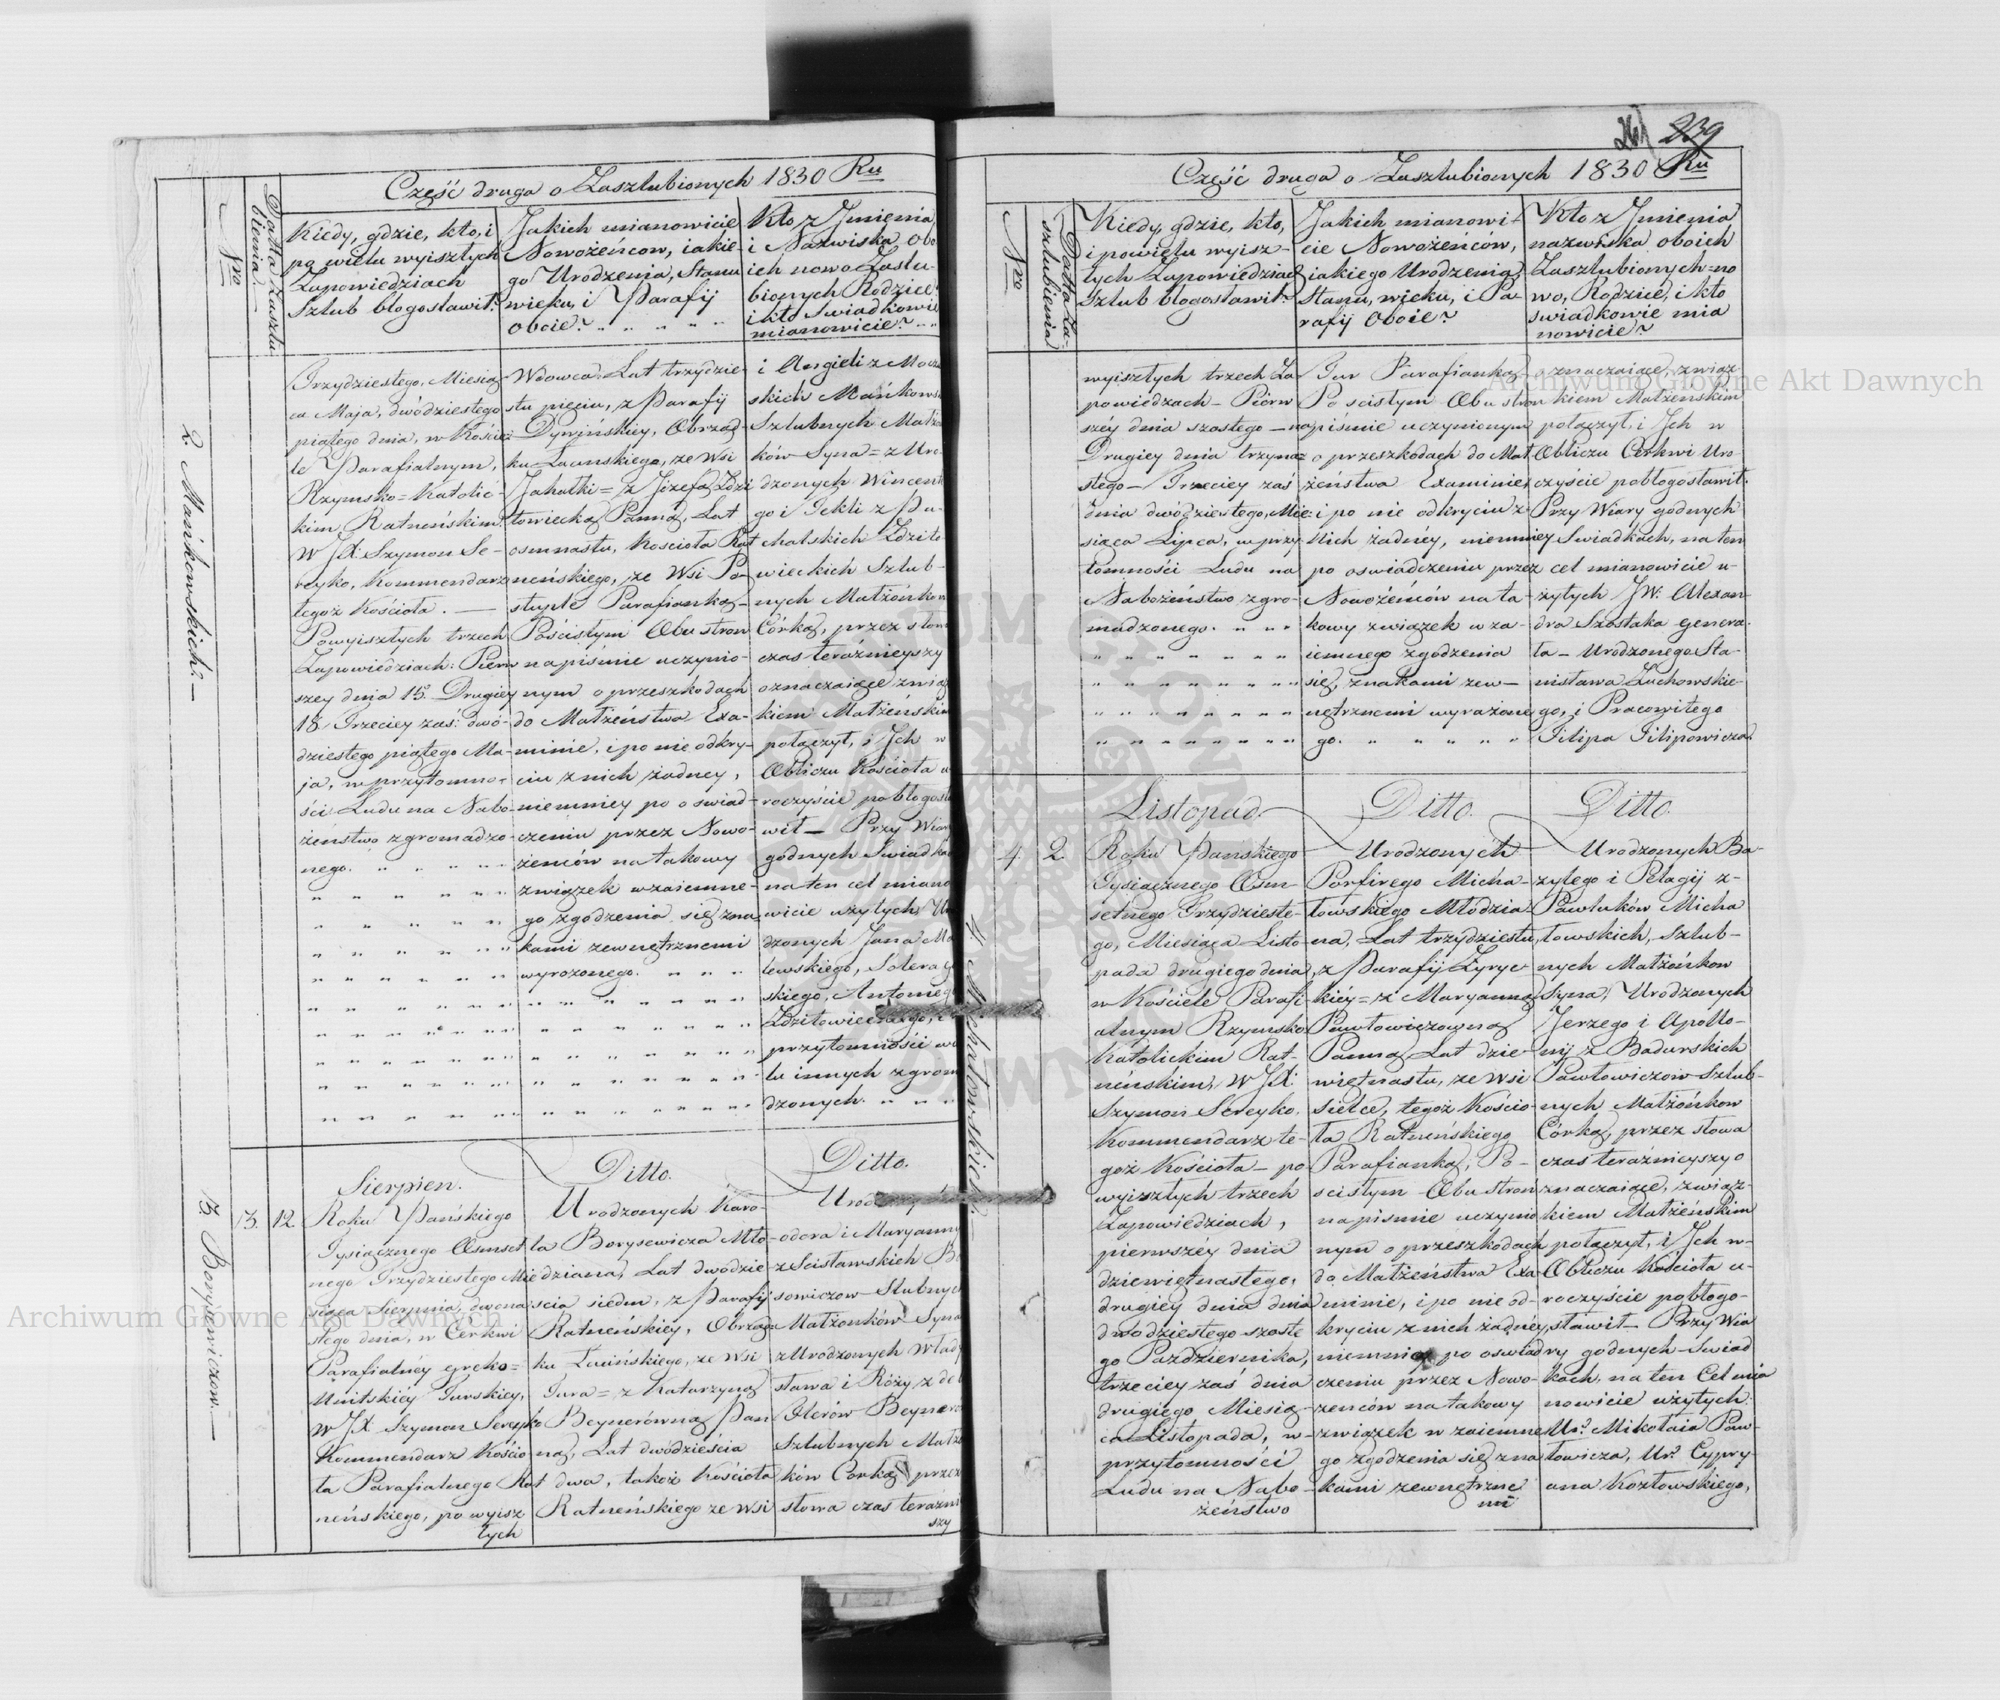 26) 239
Część druga o Zaszlubionych 1830 Ru
Datta Zaszlu-
bienia
Nro
Kiedy, gdzie, kto, i
po wielu wyisztych
Zapowiedziach
Szlub błogosławił?
Jakich mianowicie
Nowożeńcow, iakie-
go Urodzenia, Stanu
wieku, i Parafij
oboie?
Kto z Jmienia
i Nazwiska obo
ich nowo Zaslu-
bionych Rodzice
i kto Swiadkowie
mianowicie?
2. Mańkowskich.
Trzydziestego, Miesią-
ca Maja, dwódziestego
piątego dnia, w Kościе-
le Parafialnym,
Rzymsko = Katolic-
kim, Ratneńskim,
W JX: Szymon Se-
reyko, Kommendarz
tegoż Kościoła.
Powyisztych trzech
Zapowiedziach: Pierw
szey dnia 15. Drugiey
18. Trzeciey zaś: dwó-
dziestego piątego Ma-
ja, w przytomno-
ści Ludu na Nabo-
żeństwo zgromadzo-
nego.
Wdowca, Lat trzydzie-
stu pięciu, z Parafij
Dywińskiey, Obrząd-
ku Łacinskiego, ze Wsi
Jahatki = z Józefą Zdzi
towiecką Panną, Lat
osmnastu, Kosciola Rat
neńskiego, ze Wsi Po-
stuple Parafianką-
Pościstym Obu stron
na piśmie uczynio-
nym o przeszkodach
do Matżeństwa Exa-
minie, i po nie odkry-
ciu z nich żadney,
niemniey po oswiad-
czeniu przez Nowo-
żeńców na takowy
związek wzaiemne-
go zgodzenia się zna
kami zewnętrznemi
wyrożonego.
i Angieli z Mocz
skich Mańkows
Szlubnych Matżo
ków Syna = z Uro
dzonych Wincent
go i Tekli z Pu-
chalskich Zdzito
wieckich Szlub-
nych Matżonkow
Córką, przez słow
czas teraźnieyszy
oznaczaiące zwią
kiem Matżeńskim
połączył, i Jch w
Obliczu Kościoła u
roczyście pobłogosła
wił- Przy Wiary
godnych Swiadka
na ten cel miano
wicie użytych Uro
dzonych Jana Ma
lewskiego,
skiego, Antoniego
Zdzitowieckiego, i
przytomności wie
lu innych zgrom
dzonych.
3. Borysowiczow.
Sierpien. Ditto. Ditto.
13. 12
Roku Pańskiego
Tysiącznego Osmset
nego Trzydziestego Mie
siąca Sierpnia, dwona
stego dnia, w Cerkwi
Parafialnéy greko=
Unitskiéy Turskiey,
W JX Szymon Sereyko
Kommendarz Kościo
ła Parafialnego Rat
neńskiego, po wyisz
tych
Urodzonych Karo-
la Borysewicza Mło-
dziana, Lat dwódzie-
scia siedm, z Parafij
Ratneńskiey, Obrząd
ku Łacińskiego, ze Wsi
Tura = z Katarzyną
Beynerówną Pan
ną, Lat dwódzieścia
dwa, takoż Kościoła
Ratneńskiego ze Wsi
odora i Maryanny
z Scisławskich Bo
sowiczow Slubnych
Matżonków Syna
z Urodzonych Włady
sława i Róży z de
Olerów Beynerow
Szlubnych Matżo
ków Corką przez
słowa czas teraźni
szy
Część druga o Zaszlubionych 1830 Ru
Nro
Datta Za-
szlubienia
Kiedy, gdzie, kto,
i powielu wyisz-
tych Zapowiedziach
Szlub błogosławił?
Jakich mianowi-
cie Nowożeńców,
iakiego Urodzenia,
Stanu, wieku, i Pa-
rafij Oboie?
Kto z Jmienia
nazwiska oboich
Zaszlubionych no
wo, Rodzice, i kto
swiadkowie mia
nowicie?
wyisztych trzech Za-
powiedziach- Pierw
széy dnia szostego -
Drugiey dnia trzyna-
stego- Trzeciey zaś
dnia dwódziestego, Mie-
siąca Lipca, w przy
tomności Ludu na
Nabożeństwo zgro-
madzonego.
Tur Parafianką-
Po scistym Obu stron
na piśmie uczynionym
o przeszkodach do Mat
żeństwa Examinie
i po nie odkryciu z
nich żadnéy, niemniey
po oswiadczeniu przez
Nowożeńców na ta-
kowy związek wza-
iemnego zgodzenia
się, znakami zew-
nętrznemi wyrażone
go.
oznaczaiące, związ
kiem Matżeńskim
połączył, i Jch w
Obliczu Cerkwi Uro-
czyście pobłogosławił.
Przy Wiary godnych
Swiadkach, na ten
cel mianowicie u-
żytych JW: Alexan-
dra Szostaka genera-
ła- Urodzonego Sta-
nisława Żuchowskie-
go, i Pracowitego
Filipa Filipowicza.
4. Michałowskich.
Listopad. Ditto. Ditto.
4. 2.
Roku Pańskiego
Tysiącznego Osm-
setnego Trzydzieste-
go, Miesiąca Listo
pada drugiego dnia,
w Kościele Parafi-
alnym Rzymsko
Katolickim Rat-
neńskim, W JX:
Szymon Sereyko,
Kommendarz te-
goż Kościoła- po
wyisztych trzech
Zapowiedziach,
pierwszéy dnia
dziewiętnastego,
drugiey dnia dnia
dwodziestego szoste
go Pazdziernika,
trzeciey zaś dnia
drugiego Miesią-
ca Listopada, w-
przytomności
Ludu na Nabo-
żeństwo
Urodzonych
Porfirego Micha-
łowskiego Młodzia-
na, Lat trzydziestu,
z Parafij Żyryc-
kiéy = z Maryanną
Pawłowiczowną
Panną, Lat dzie-
więtnastu, ze Wsi
Sielce, tegoż Kościo-
ła Ratneńskiego
Parafianką, Po-
scistym Obu stron
na pismie uczynio
nym o przeszkodach
do Matżeństwa Exa
minie, i po nie od-
kryciu z nich żadnéy,
niemniey po oswiad
czeniu przez Nowo-
żenców na takowy
związek w zaiemne
go zgodzenia się zna
kami zewnętrzne
mi
Urodzonych Ba-
zylego i Pelagij z-
Pawluków Micha
łowskich, Szlub-
nych Matżonkow
Syna, Urodzonych
Jerzego i Apollo-
nij z Badurskich
Pawłowiczow Szlub-
nych Matżonkow
Córką, przez słowa
czas teraznieyszy o
znaczaiące, związ-
kiem Matżeńskim
połączył, i Jch w-
Obliczu Kościoła u-
roczyscie pobłogo-
sławił- Przy Wia
ry godnych Swiad
kach, na ten Cel mia
nowicie użytych:
Ur: Mikołaia Paw-
łowicza, Ur: Cypry-
ana Kozłowskiego,
Archiwum Główne Akt Dawnych
Archiwum Główne Akt Dawnych